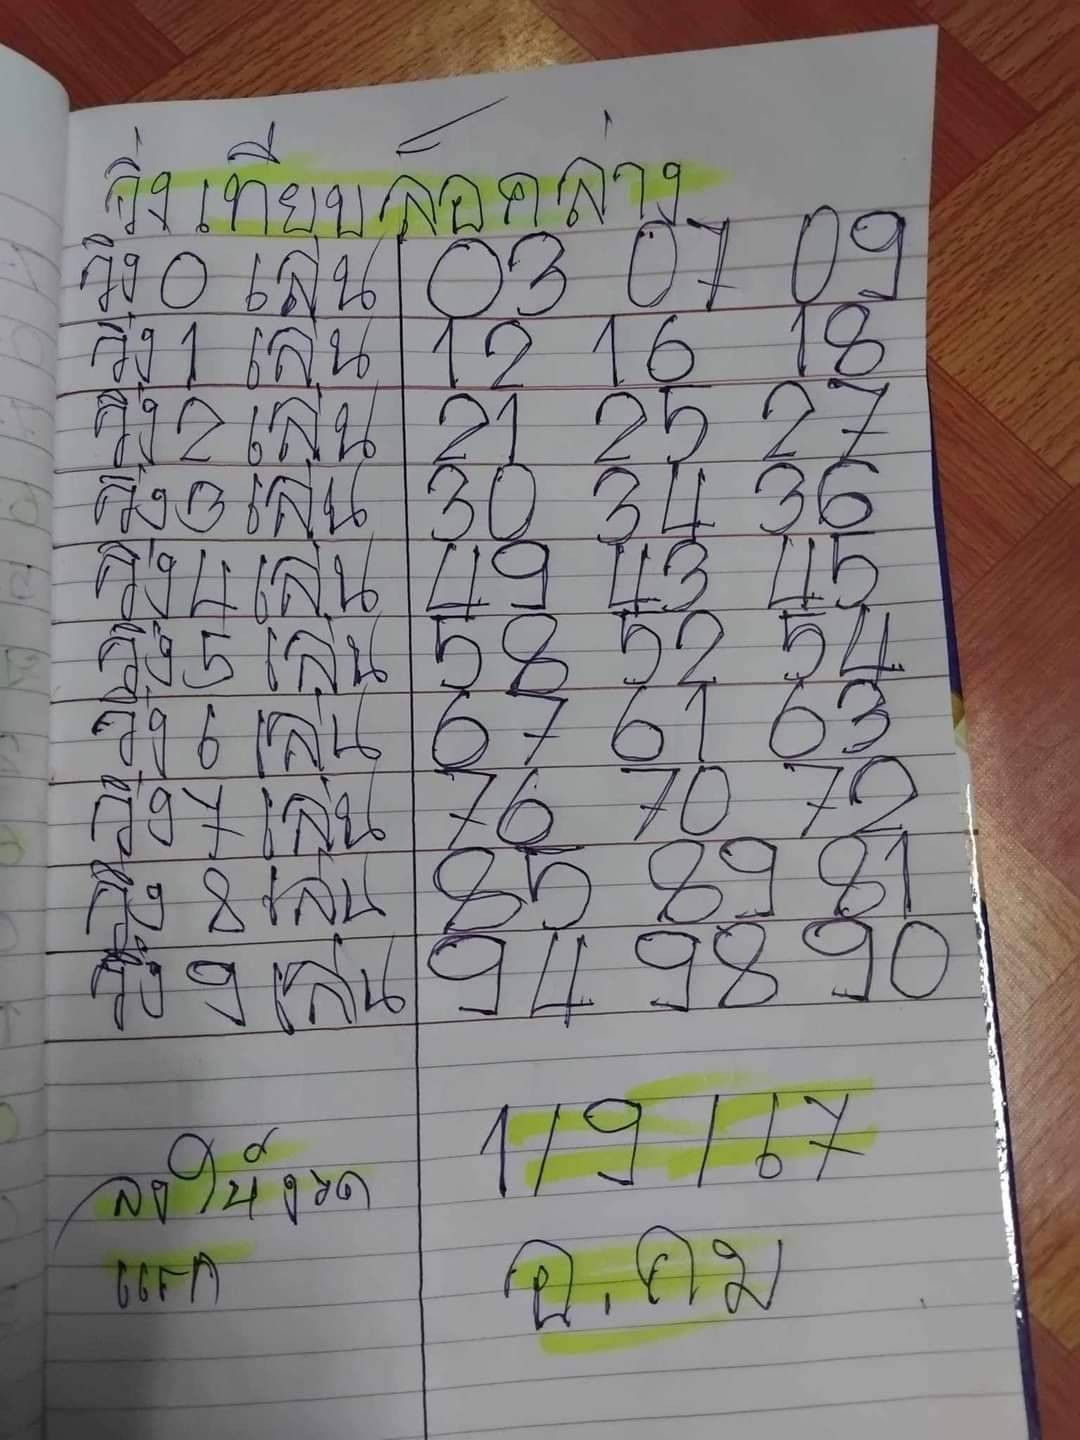 วิ่งเทียบล๊อคล่าง
วิ่ง 0 เล่น 03 07 09
วิ่ง 1 เล่น 12 16 18
วิ่ง 2 เล่น 21 25 27
วิ่ง 3 เล่น 30 34 36
วิ่ง 4 เล่น 49 43 45
วิ่ง 5 เล่น 58 52 54
วิ่ง 6 เล่น 67 61 63
วิ่ง 7 เล่น 76 70 72
วิ่ง 8 เล่น 85 89 81
วิ่ง 9 เล่น 94 98 90
1/9/67
ลงให้งวด
แรก
อ.คม